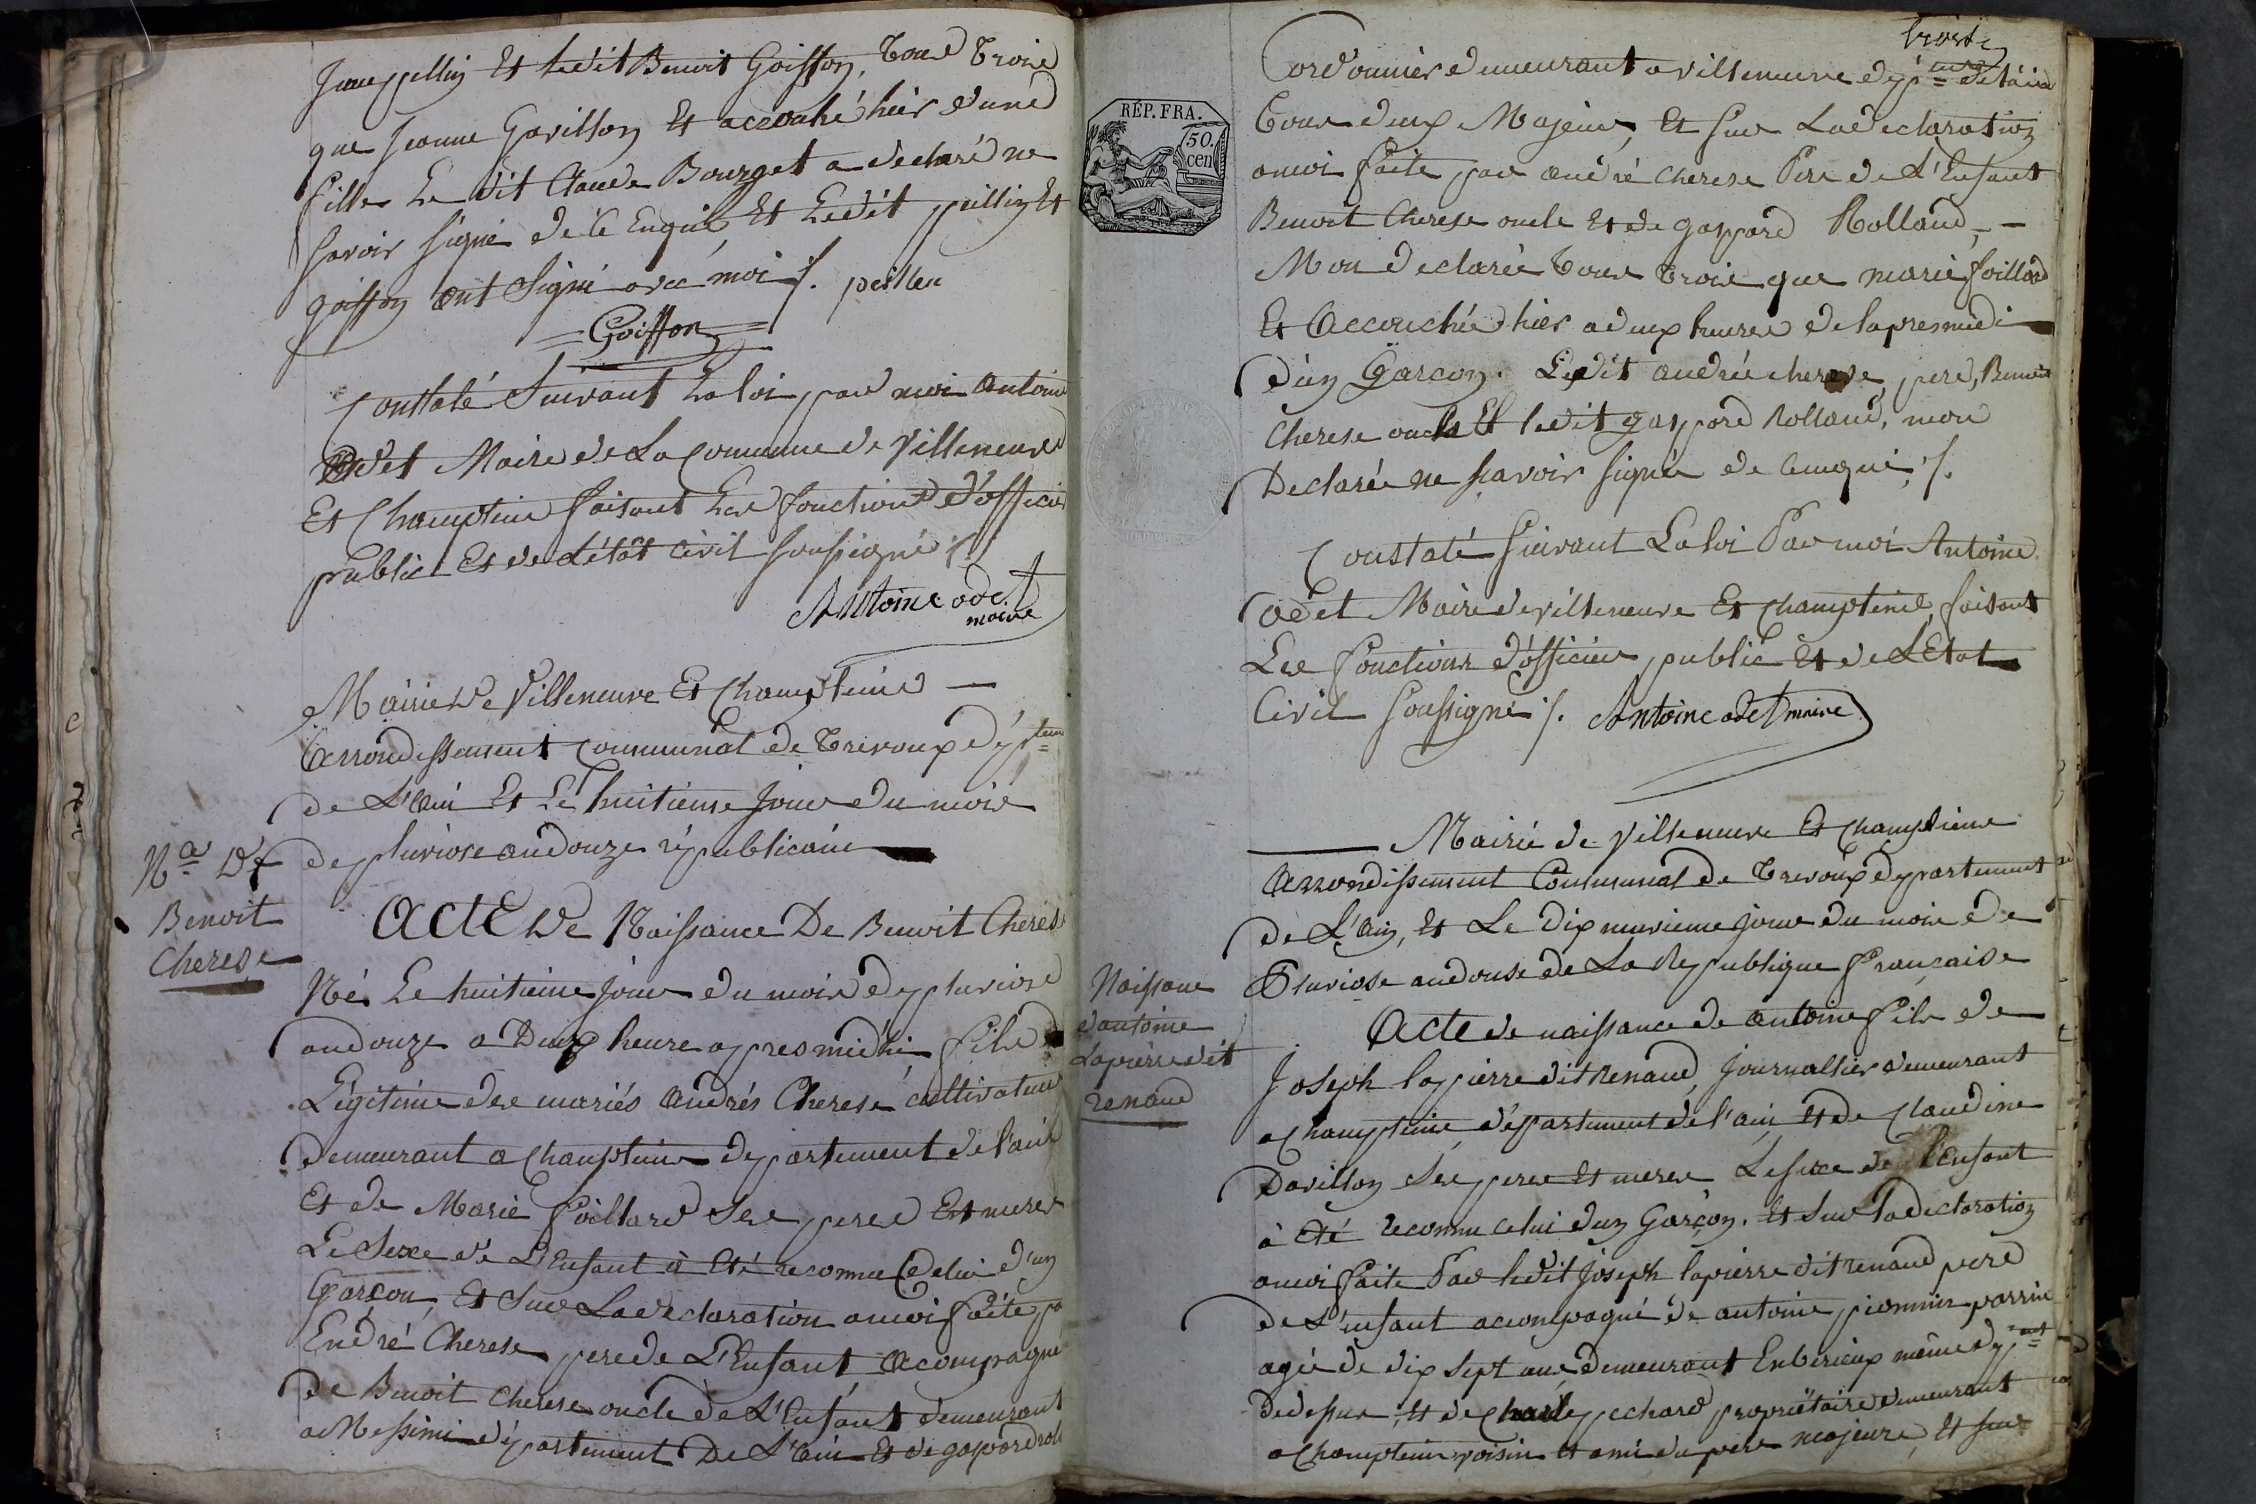 Jean pellin Et ledit Benoit Goiffon, Tous Trois
que Jeanne Gavillon Et accouché hier d'une
fille Le dit Claude Bourget a declaré ne
savoir signé de ce Enquis Et Ledit peillin Et
goiffon ont Signé avec moi /. peillen
Goiffon
Constaté Suivant La loi par moi antoine
Odet Maire de La Commune de Villeneuve
Et Champtein faisant Les fonctions d'officier
public Et de L'état Civil soussigné /.
Antoine odet
maire
Mairie de Villeneuve Et Champteins
Arrondissement Communal de Trevoux dép.tem
de L'Ain Et Le huitieme jour du mois
de pluviose an douze républicain
N.ce De
Benoit
Cherese
Acte De Naissance De Benoit Cherese
Né Le huitieme jour du mois de pluviose
an douze a Deux heure appres midi fils
Légitime des mariés Andrés Cherese cultivateur
demeurant a Champteins departement de l'ain
Et de Marie foillard Ses peres Et meres
Le Sexe de L'Enfant à Eté reconnu Celui d'un
Garcon, Et Sur La declaration a moi faite pa
Endré Cherese pere de L'Enfant acompagné
de Benoit Cherese oncle de L'Enfant demeurant
a Messimi département De L'Ain Et de gaspard rol
trois
Cordonnier demeurant a villeneuve dep.t de l'ain
Tous deux Majeurs, Et sur La declaration
a moi faite par andré cherese Pere de L'Enfant
Benoit Cherese oncle Et de gaspard Rolland,
Mon declarée Tous Trois que marie foillard
Et Accouchée hier a deux heures de lapresmidi
d'un Garcon. Ledit andrée cherese pere, Benoit
Cherese oncle Et ledit gaspard Rolland, mon
Declarée ne savoir signée de ce enquis /.
Constaté suivant La loi Par moi Antoine
odet Maire de villeneuve Et Champteins faisant
Les fonctions d'officier public Et de L'Etat
Civil soussigné /. Antoine odet maire
RÉP. FRA.
50.
cen
Mairie de Villeneuve Et Champteins
Arrondissement Communal de Trevoux Departement
de L'Ain, Et Le Dix neuvieme jour du mois de
Pluviose an douse de La Republique française
Naissance
d'antoine
Lapierre dit
renaud
Acte de naissance de antoine fils de
Joseph lapierre dit Renaud, journallier demeurant
a Champteins, département de l'ain Et de Claudine
Davillon Ses peres Et meres Le sexe de l'Enfant
à Eté reconnu celui d'un Garçon. Et Sur la declaration
a moi faite Par ledit Joseph lapierre dit renaud pere
de L'enfant accompagné de antoine pionnier parrin
agée de dix Sept ans, demeurant Enberieux même dep.nt
De dessus, Et de Charle pechard propriétaire demeurant
a Champteins voisin Et ami du pere majeure, Et sur